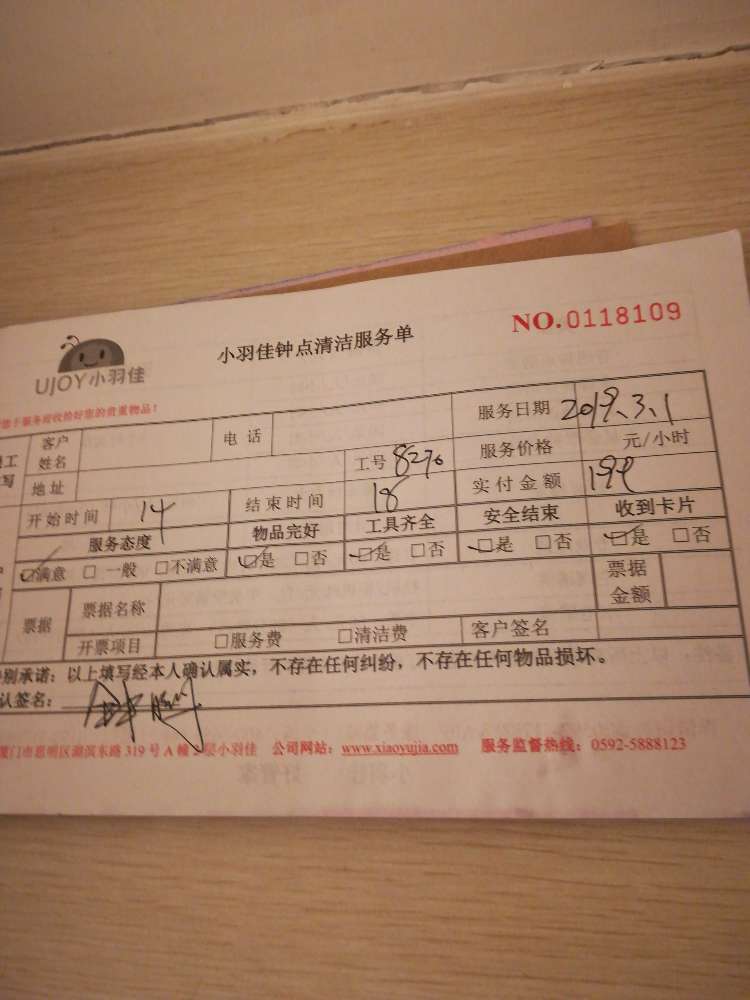 NO.0118109
小羽佳钟点清洁服务单
UJOY小羽佳
服务时请收拾好您的贵重物品!
客户姓名 电话 服务日期 2019.3.1
工号 8276 服务价格 元/小时
地址 实付金额
开始时间 14 结束时间 18
服务态度 物品完好 工具齐全 安全结束 收到卡片
☑满意 □一般 □不满意 ☑是 □否 ☑是 □否 ☑是 □否 ☑是 □否
票据 票据名称 票据金额
开票项目 □服务费 □清洁费 客户签名
别承诺:以上填写经本人确认属实,不存在任何纠纷,不存在任何物品损坏。
认签名:
厦门市思明区湖滨东路319号A幢 层小羽佳 公司网站:www.xiaoyujia.com 服务监督热线:0592-5888123